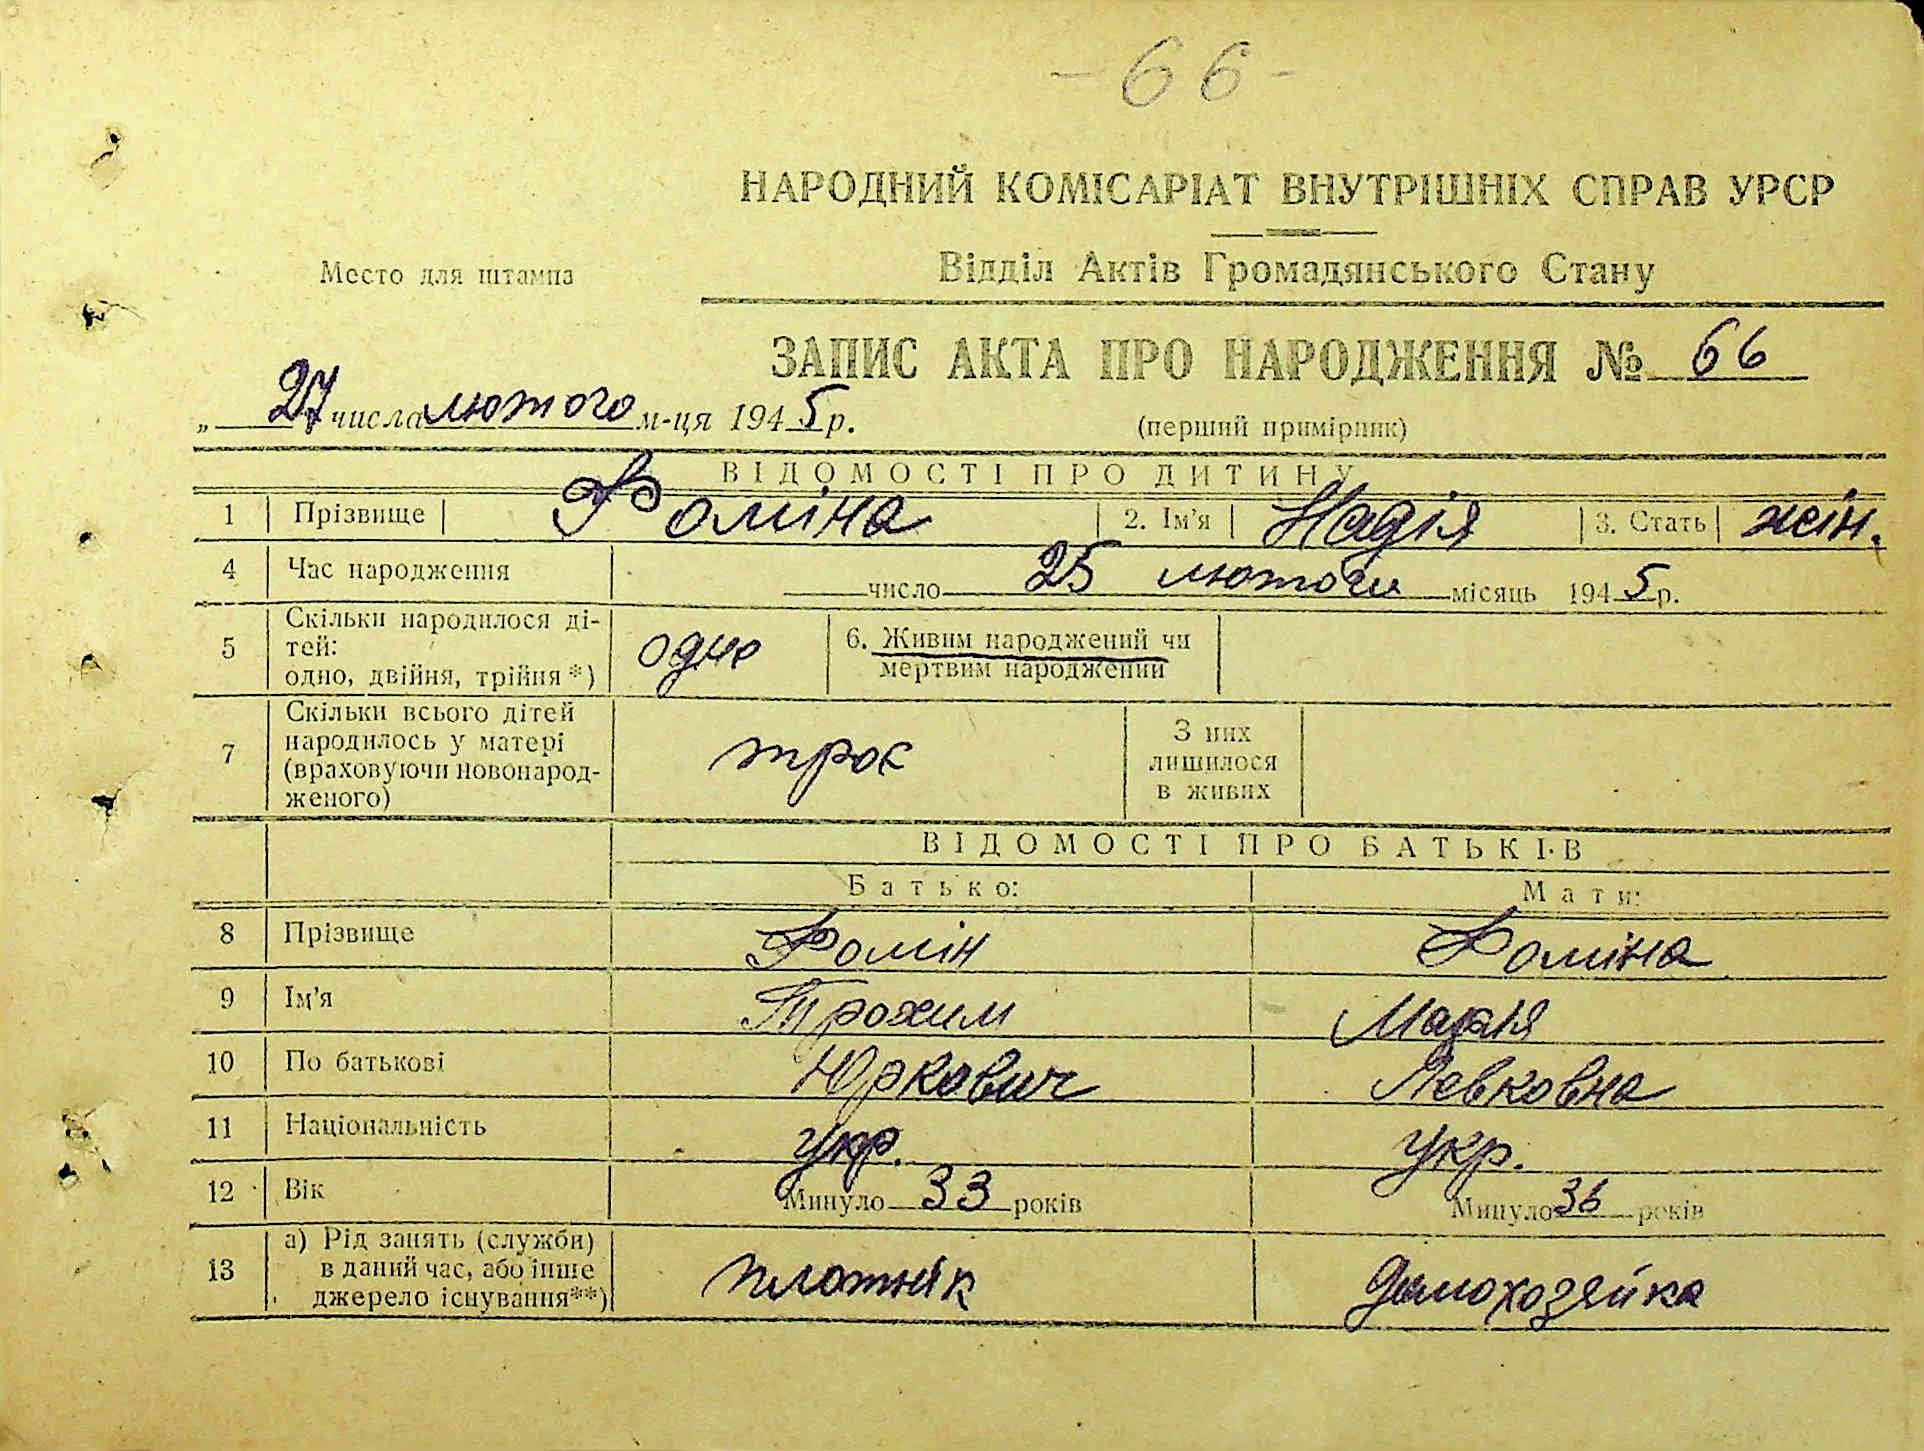 -66-
НАРОДНИЙ КОМІСАРІАТ ВНУТРІШНІХ СПРАВ УРСР
Место для штампа
Відділ Актів Громадянського Стану
ЗАПИС АКТА ПРО НАРОДЖЕННЯ № 66
„ 27 числа лютого м-ця 1945 р.
(перший примірник)
ВІДОМОСТІ ПРО ДИТИНУ
1 Прізвище Фоміна 2. Ім'я Надія 3. Стать жін.
4 Час народження число 25 лютого місяць 1945 р.
5 Скільки народилося ді-
тей:
одно, двійня, трійня*) одно 6. Живим народжений чи
мертвим народжений
7 Скільки всього дітей
народилось у матері
(враховуючи новонарод-
женого) троє З них
лишилося
в живих
ВІДОМОСТІ ПРО БАТЬКІВ
Батько: Мати:
8 Прізвище Фомін Фоміна
9 Ім'я Трохим Марія
10 По батькові Юркович Левковна
11 Національність укр. укр.
12 Вік Минуло 33 років Минуло 36 років
13 а) Рід занять (служби)
в даний час, або інше
джерело існування**) плотнік домохозяйка